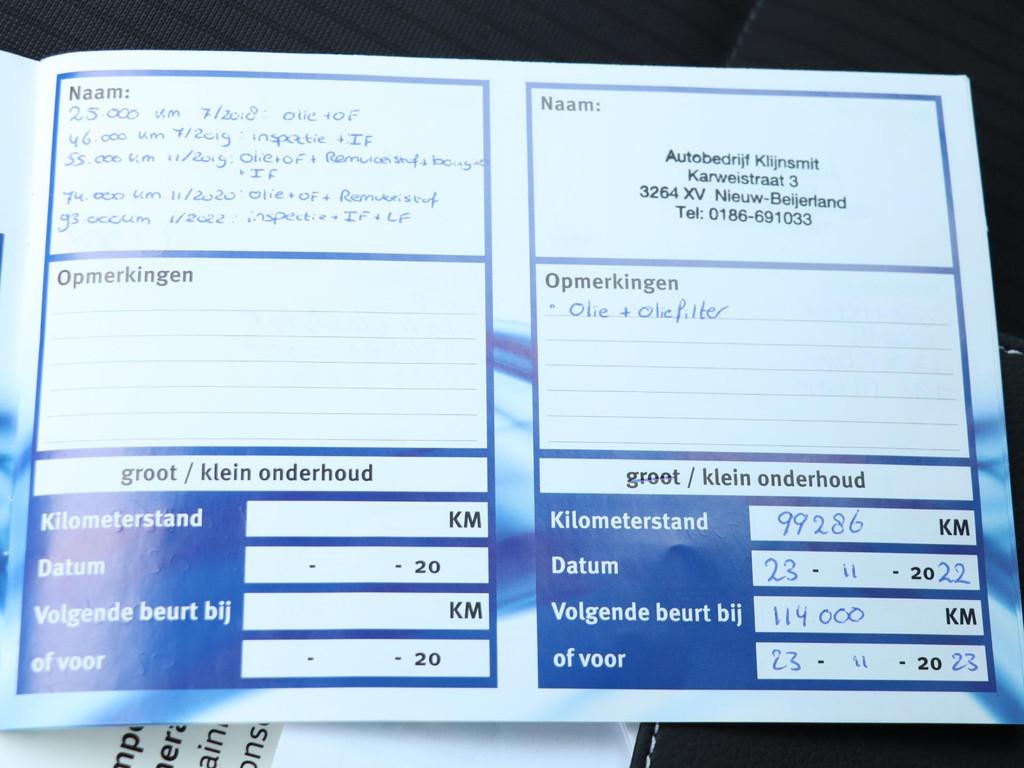 Naam:
25.000 km 7/2018: olie + OF
46.000 km 7/2019: inspectie + IF
55.000 km 11/2019: Olie + OF + Remvloeistof + bougies
+ IF
74.000 km 11/2020: Olie + OF + Remvloeistof
93.000km 1/2022: inspectie + IF + LF
Opmerkingen
groot / klein onderhoud
Kilometerstand KM
Datum - - 20
Volgende beurt bij KM
of voor - - 20
Naam:
Autobedrijf Klijnsmit
Karweistraat 3
3264 XV Nieuw-Beijerland
Tel: 0186-691033
Opmerkingen
• Olie + Oliefilter
groot / klein onderhoud
Kilometerstand 99286 KM
Datum 23 - 11 - 2022
Volgende beurt bij 114 000 KM
of voor 23 - 11 - 2023